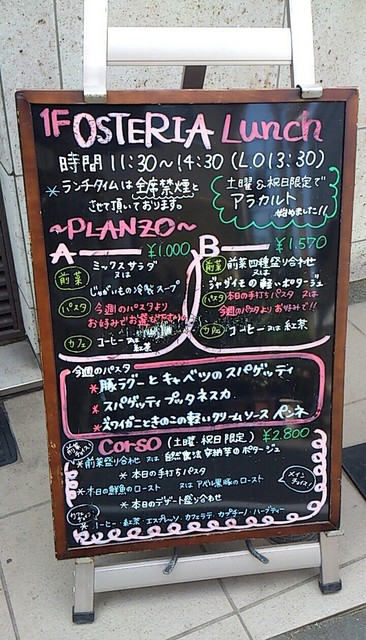 1F OSTERIA Lunch
時間 11:30〜14:30 (LO13:30)
*ランチタイムは全席禁煙と
させて頂いております。
土曜&祝日限定で
アラカルト
始めました!!
〜PLANZO〜
A ¥1.000
前菜 ミックスサラダ
又は
じゃがいもの冷製スープ
パスタ 今週のパスタより
お好みでお選び下さい
カフェ コーヒー又は
紅茶
B ¥1.570
前菜 前菜四種盛り合わせ
又は
ジャガイモの軽いポタージュ
パスタ 本日の手打ちパスタ 又は
今週のパスタよりお好みで!!
カフェ コーヒー又は紅茶
今週のパスタ
*豚ラグーとキャベツのスパゲッティ
*スパゲッティプッタネスカ
*ズワイガニときのこの軽いクリームソース ペンネ
Corso (土曜.祝日限定) ¥2.800
前菜
*前菜盛り合わせ 又は 自然食法 安納芋のポタージュ
*本日の手打ちパスタ
*本日の鮮魚のロースト 又は アベル黒豚のロースト
メイン
チョイス!
*本日のデザート盛り合わせ
カフェ
*コーヒー・紅茶・エスプレッソ・カフェラテ・カプチーノ・ハーブティー